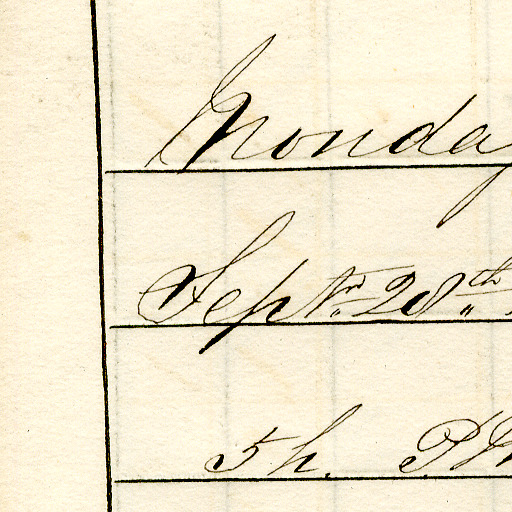 Monday
Sept.r 28th
5 h. P.M